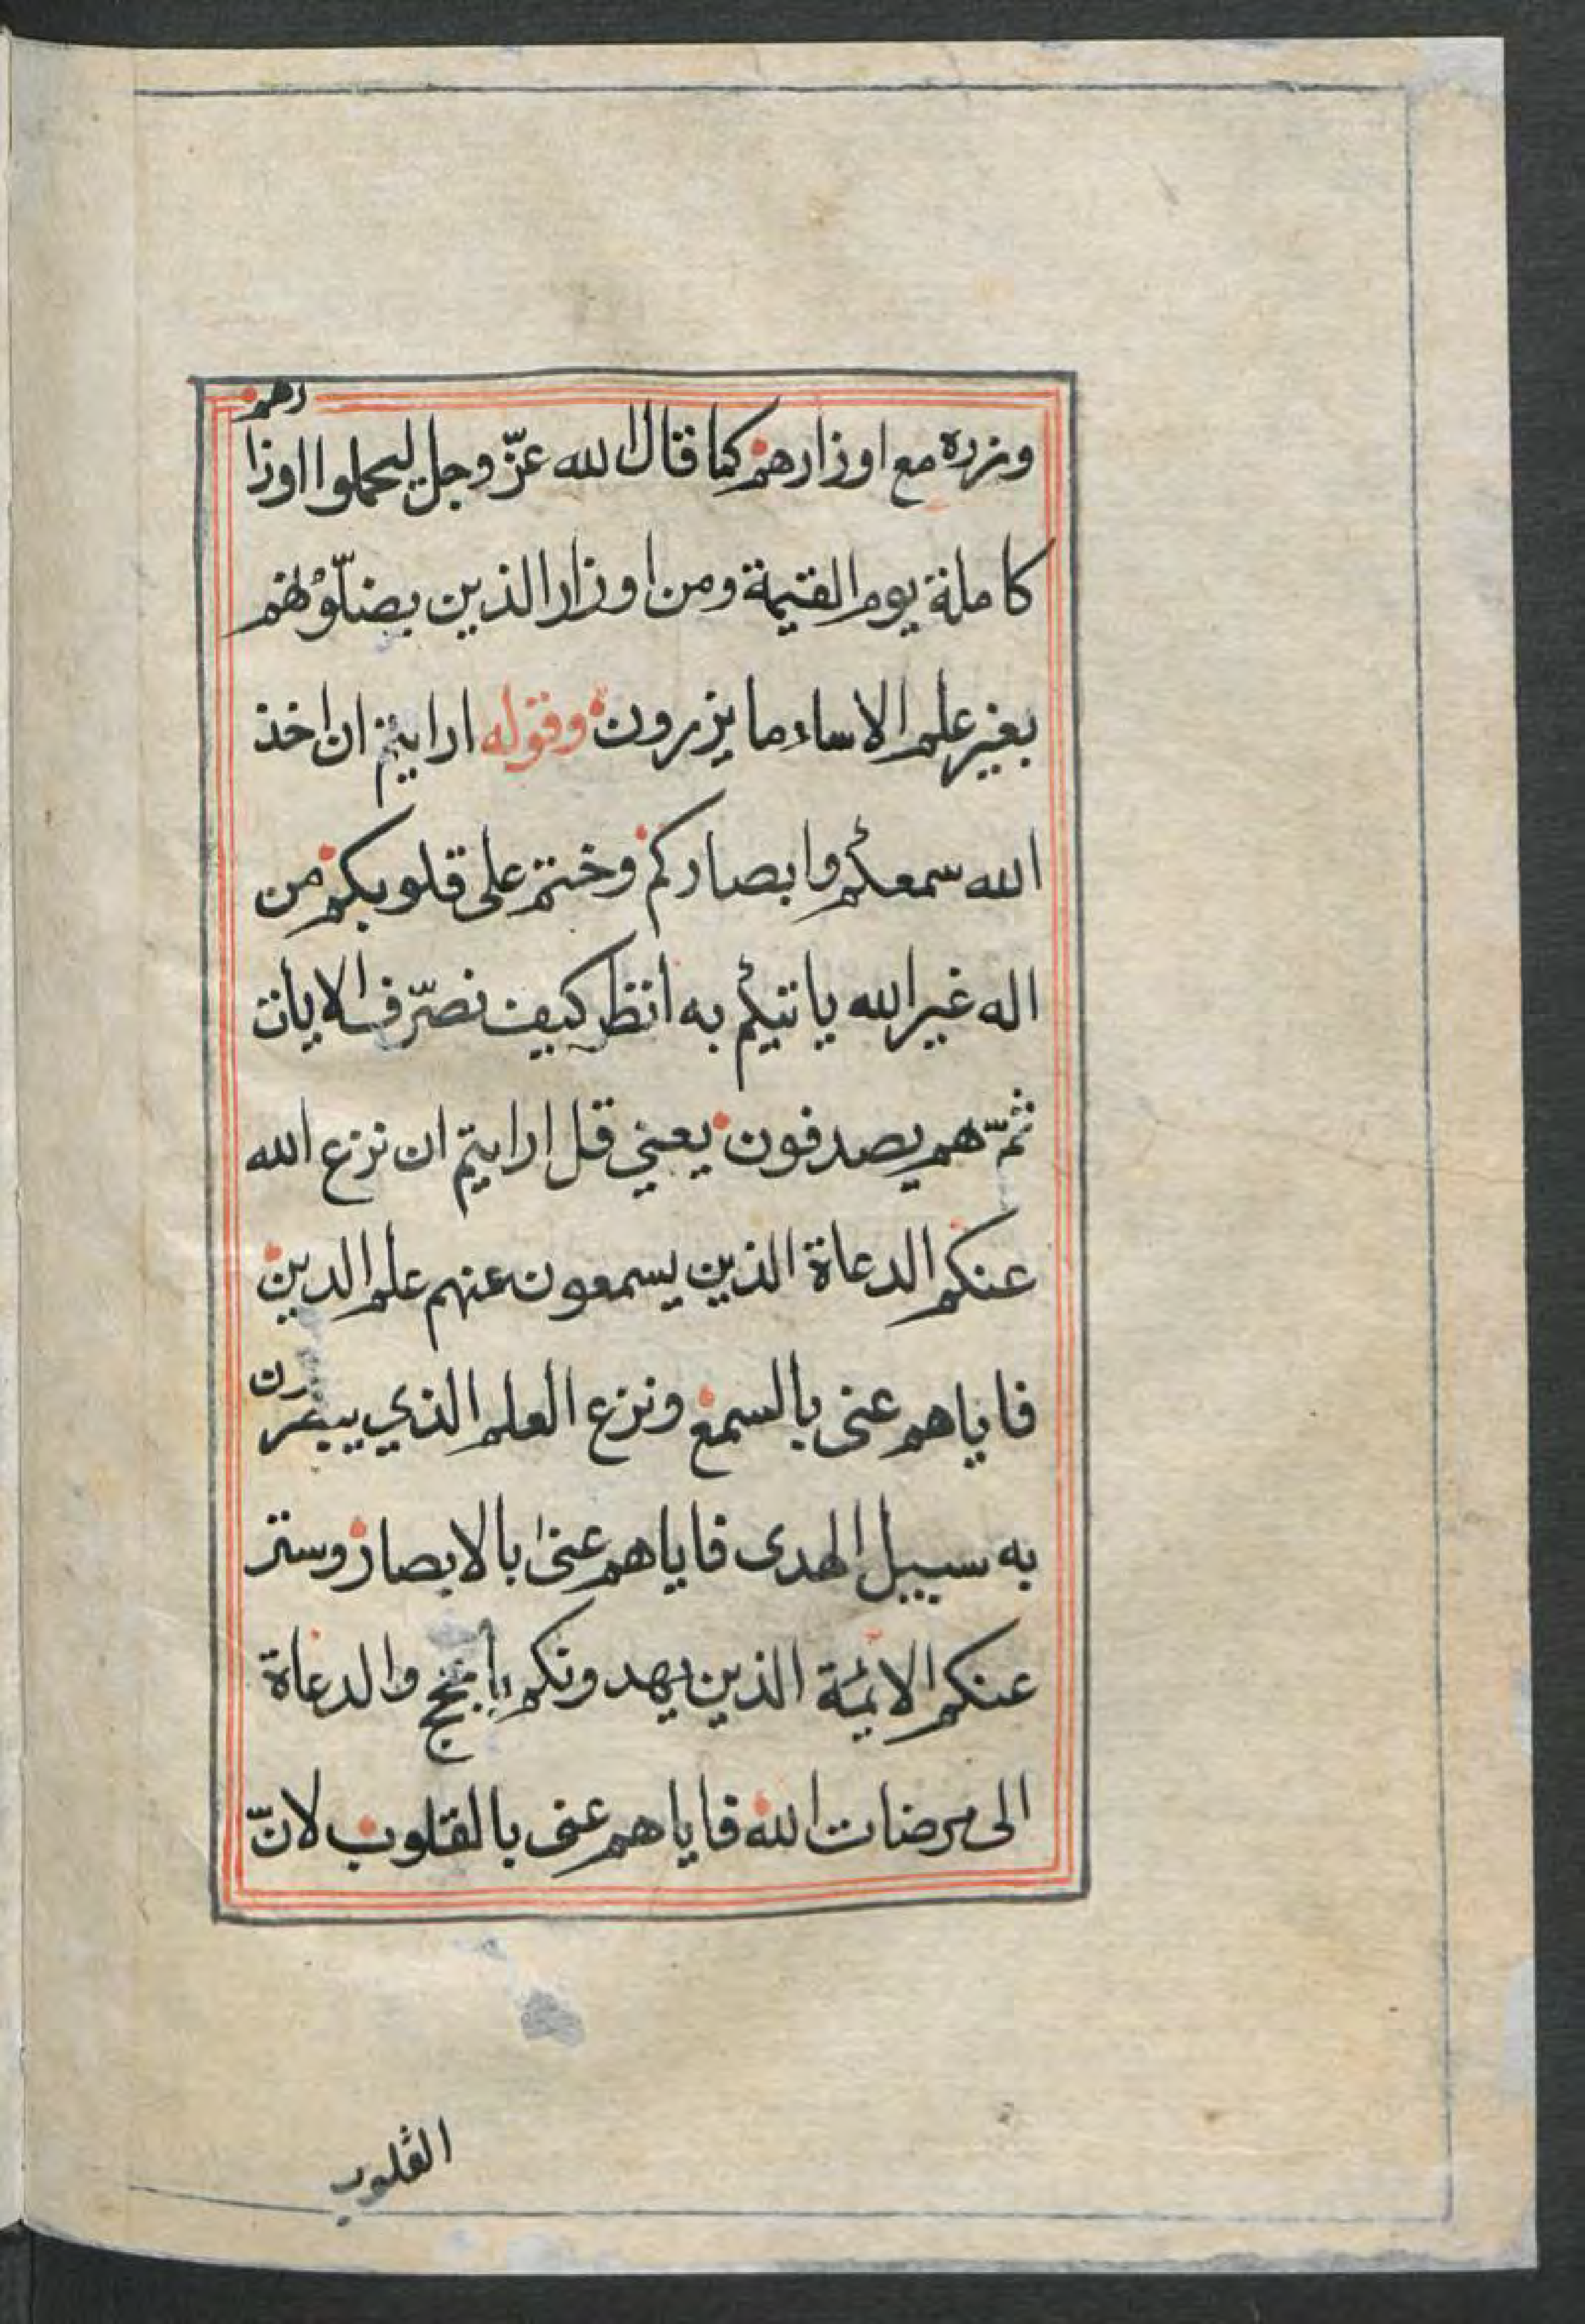 رهم
وزره مع اوزارهم كما قال الله عزّ وجل ليحملوا اوزا
كاملة يوم القيمة ومن اوزار الذين يضلّونهم
بغير علم الا ساء ما يزرون وقوله ارايتم ان اخذ
الله سمعكم وابصاركم وختم على قلوبكم من
اله غير الله ياتيكم به انظر كيف نصرّف الايات
ثمّ هم يصدفون يعني قل ارايتم ان نزع الله
عنكم الدعاة الذين يسمعون عنهم علم الدين
فاياهم عنى بالسمع ونزع العلم الذي يبصرون
به سبيل الهدى فاياهم عنى بالابصار وستر
عنكم الائمة الذين يهدونكم والدعاة
الى مرضات الله فاياهم عنى بالقلوب لانّ
القلوب